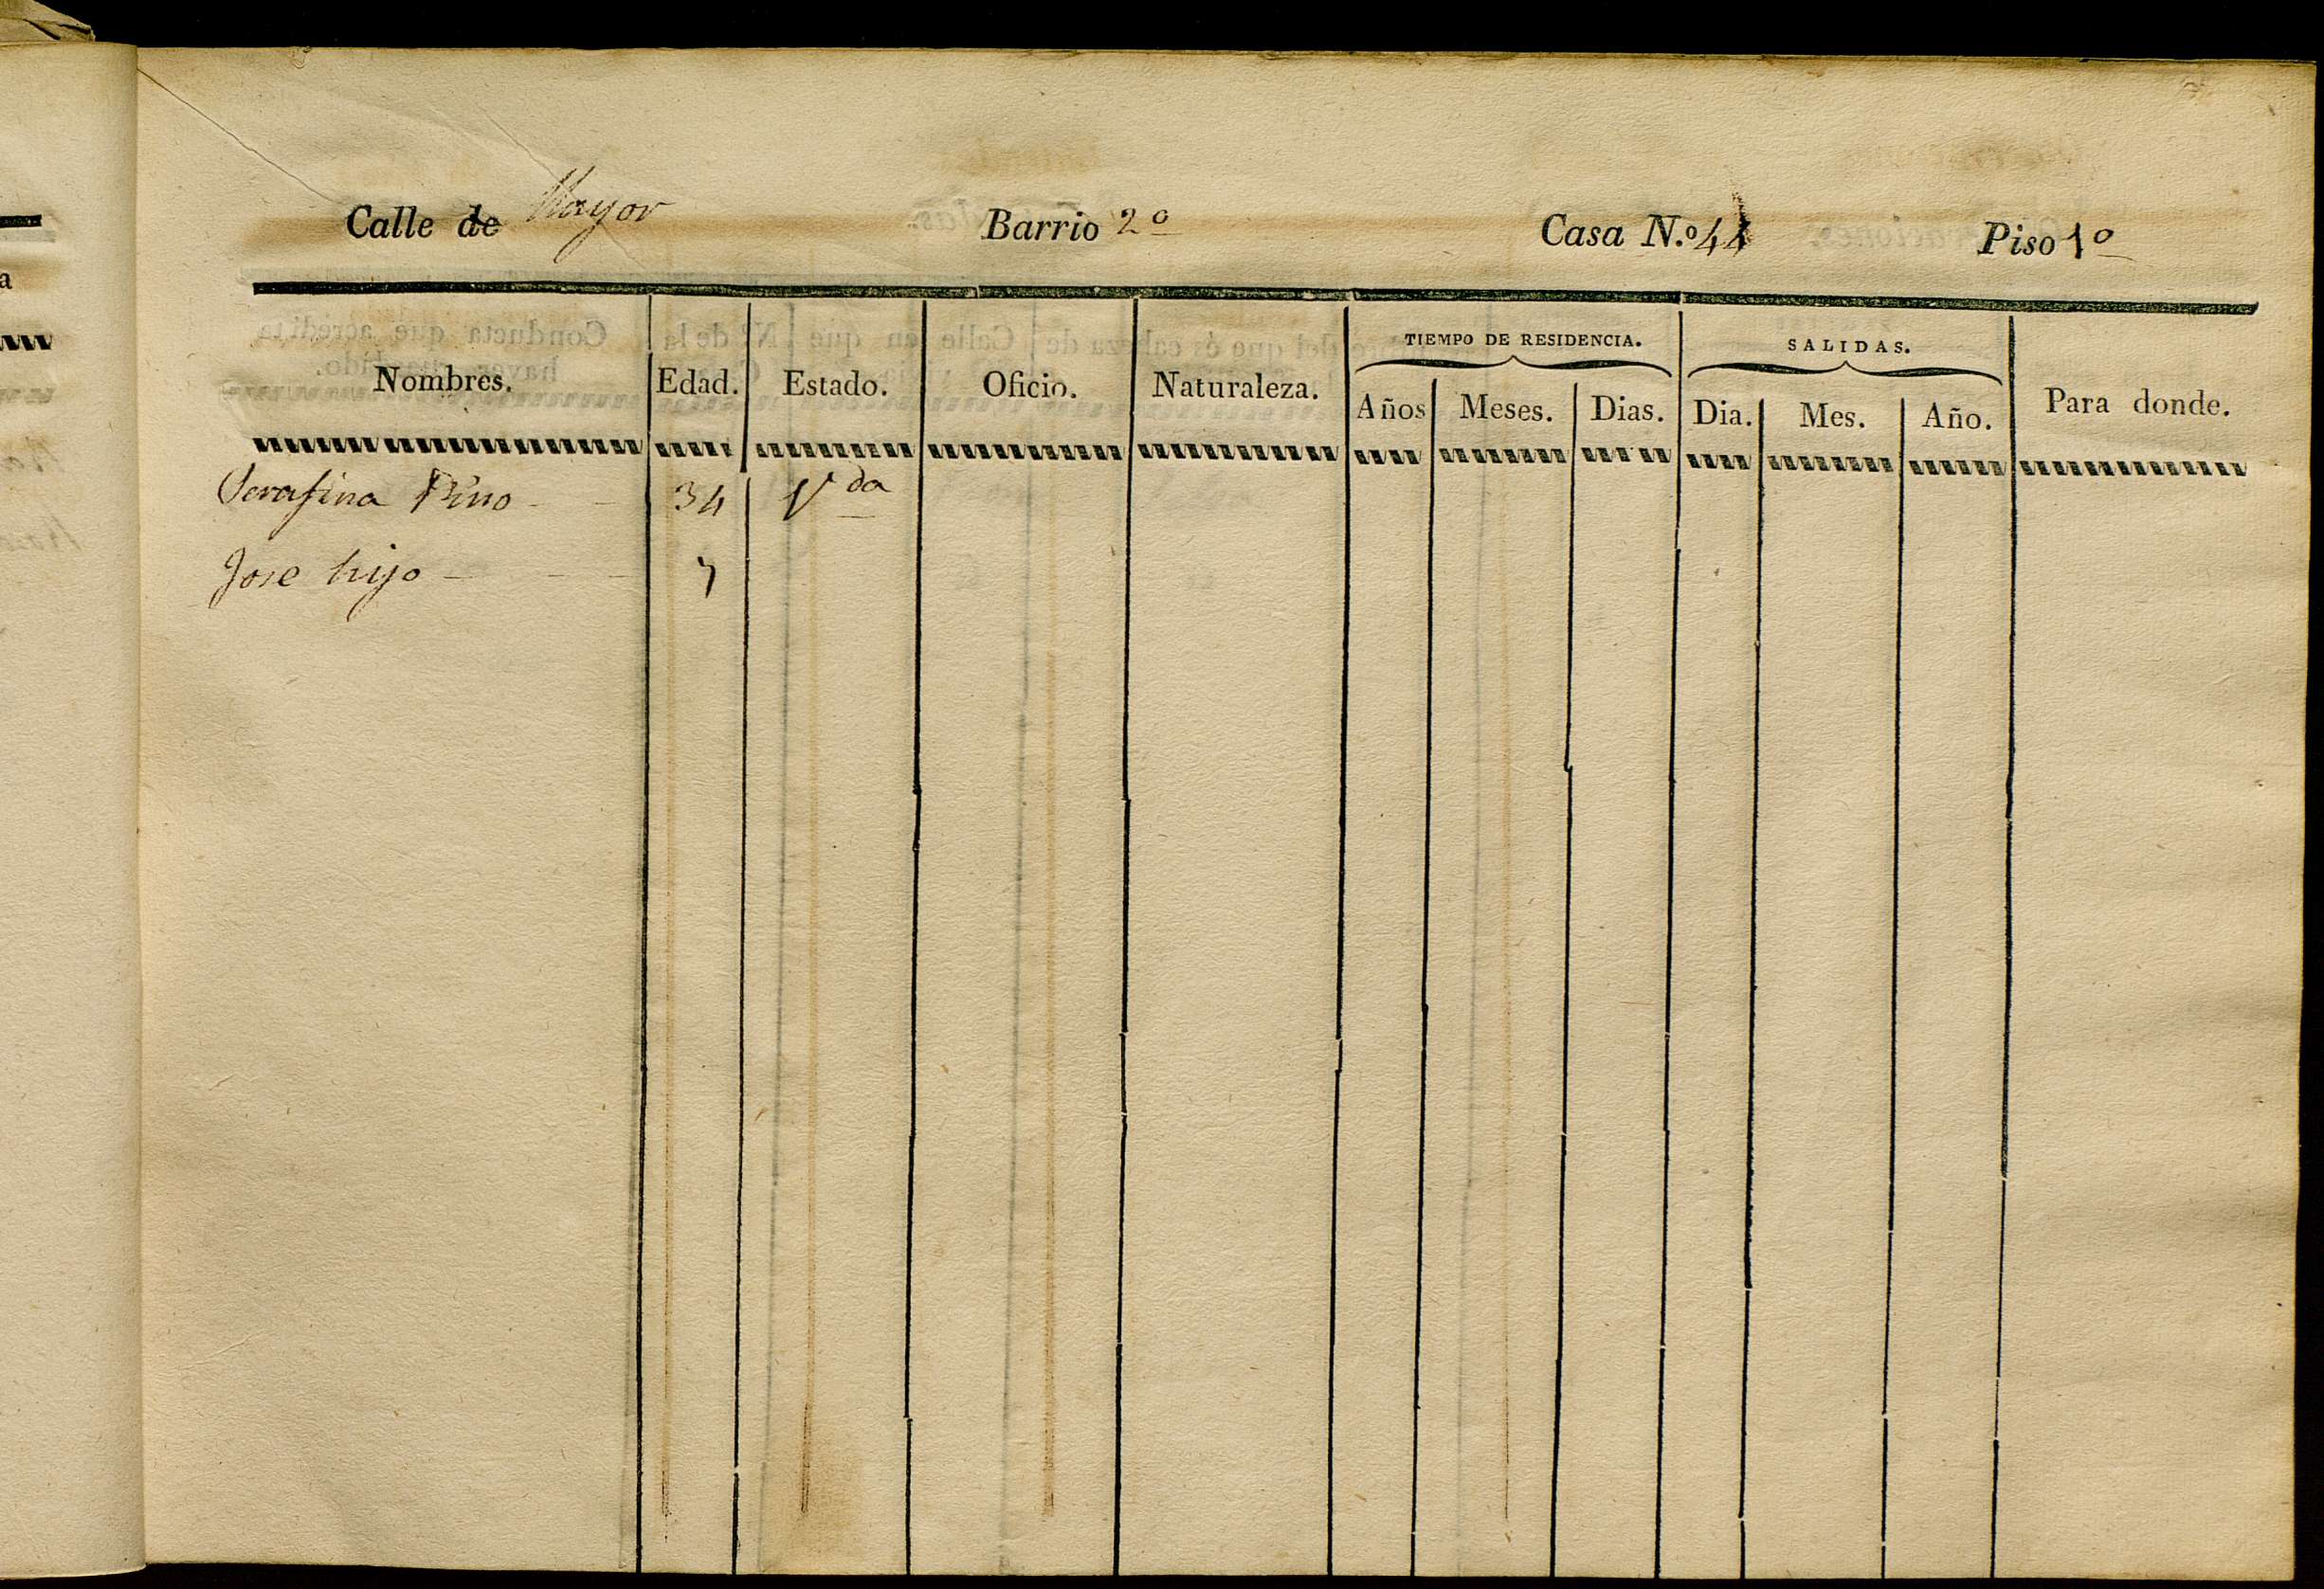 Calle de Mayor Barrio 2º Casa N.º 44 Piso 1º
TIEMPO DE RESIDENCIA. SALIDAS.
Nombres. Edad. Estado. Oficio. Naturaleza. Años Meses. Dias. Dia. Mes. Año. Para donde.
Serafina Pino 34 Vda
Jose hijo 7